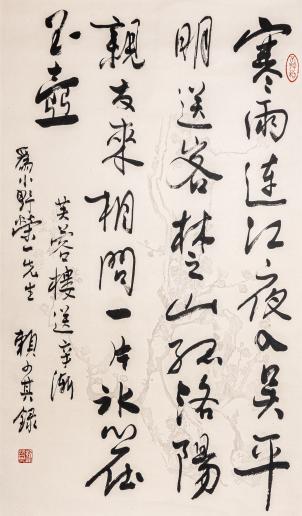 寒雨連江夜入吳平
明送客楚山孤洛陽
親友來相問一片冰心在
玉壺
芙蓉樓送辛漸
爲小野榮一先生 賴少其錄